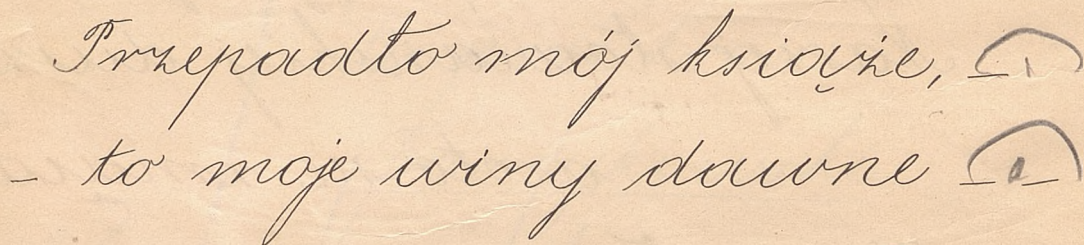 Przepadło mój książe, –
– to moje winy dawne – –